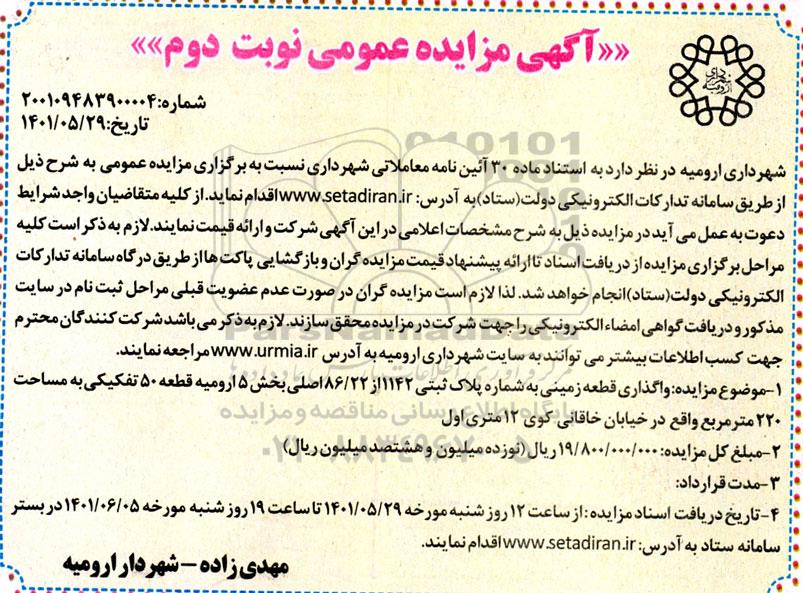 ««آگهی مزایده عمومی نوبت دوم»»
شهرداری ارومیه
شماره:۲۰۰۱۰۹۴۸۳۹۰۰۰۰۴
تاریخ:۱۴۰۱/۰۵/۲۹
شهرداری ارومیه در نظر دارد به استناد ماده ۳۰ آئین نامه معاملاتی شهرداری نسبت به برگزاری مزایده عمومی به شرح ذیل
از طریق سامانه تدارکات الکترونیکی دولت(ستاد)به آدرس: www.setadiran.ir اقدام نماید.از کلیه متقاضیان واجد شرایط
دعوت به عمل می آید در مزایده ذیل به شرح مشخصات اعلامی در این آگهی شرکت و ارائه قیمت نمایند.لازم به ذکر است کلیه
مراحل برگزاری مزایده از دریافت اسناد تا ارائه پیشنهاد قیمت مزایده گران و بازگشایی پاکت ها از طریق درگاه سامانه تدارکات
الکترونیکی دولت(ستاد)انجام خواهد شد. لذا لازم است مزایده گران در صورت عدم عضویت قبلی مراحل ثبت نام در سایت
مذکور و دریافت گواهی امضاء الکترونیکی را جهت شرکت در مزایده محقق سازند. لازم به ذکر می باشد شرکت کنندگان محترم
جهت کسب اطلاعات بیشتر می توانند به سایت شهرداری ارومیه به آدرس www.urmia.ir مراجعه نمایند.
۱-موضوع مزایده:واگذاری قطعه زمینی به شماره پلاک ثبتی ۱۱۴۲از ۸۶/۲۲ اصلی بخش ۵ ارومیه قطعه ۵۰ تفکیکی به مساحت
۲۲۰ متر مربع واقع در خیابان خاقانی کوی ۱۲متری اول
۲-مبلغ کل مزایده: ۱۹/۸۰۰/۰۰۰/۰۰۰ ریال(نوزده میلیون و هشتصد میلیون ریال)
۳-مدت قرارداد:
۴-تاریخ دریافت اسناد مزایده :از ساعت ۱۲ روز شنبه مورخه ۱۴۰۱/۰۵/۲۹ تا ساعت ۱۹ روز شنبه مورخه ۱۴۰۱/۰۶/۰۵ در بستر
سامانه ستاد به آدرس: www.setadiran.ir اقدام نمایند.
مهدی زاده – شهردار ارومیه
ParsNamadData
پایگاه اطلاع رسانی مناقصه و مزایده
۰۲۱-۸۸۳۴۹۶۷۰-۵